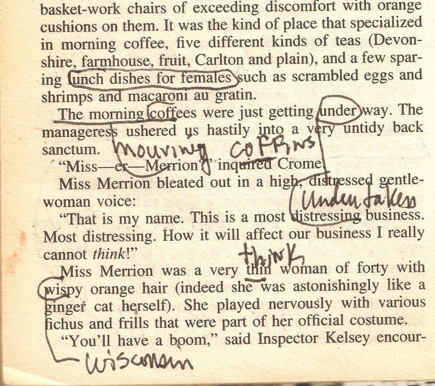 basket-work chairs of exceeding discomfort with orange
cushions on them. It was the kind of place that specialized
in morning coffee, five different kinds of teas (Devon-
shire, farmhouse, fruit, Carlton and plain), and a few spar-
ing lunch dishes for females such as scrambled eggs and
shrimps and macaroni au gratin.
The morning coffees were just getting under way. The
manageress ushered us hastily into a very untidy back
sanctum.
mouring coffins
“Miss—er—Merrion?” inquired Crome.
Miss Merrion bleated out in a high, distressed gentle-
woman voice:
Undertaken
“That is my name. This is a most distressing business.
Most distressing. How it will affect our business I really
cannot think!”
think
Miss Merrion was a very thin woman of forty with
wispy orange hair (indeed she was astonishingly like a
ginger cat herself). She played nervously with various
fichus and frills that were part of her official costume.
“You'll have a boom,” said Inspector Kelsey encour-
Wisconsin